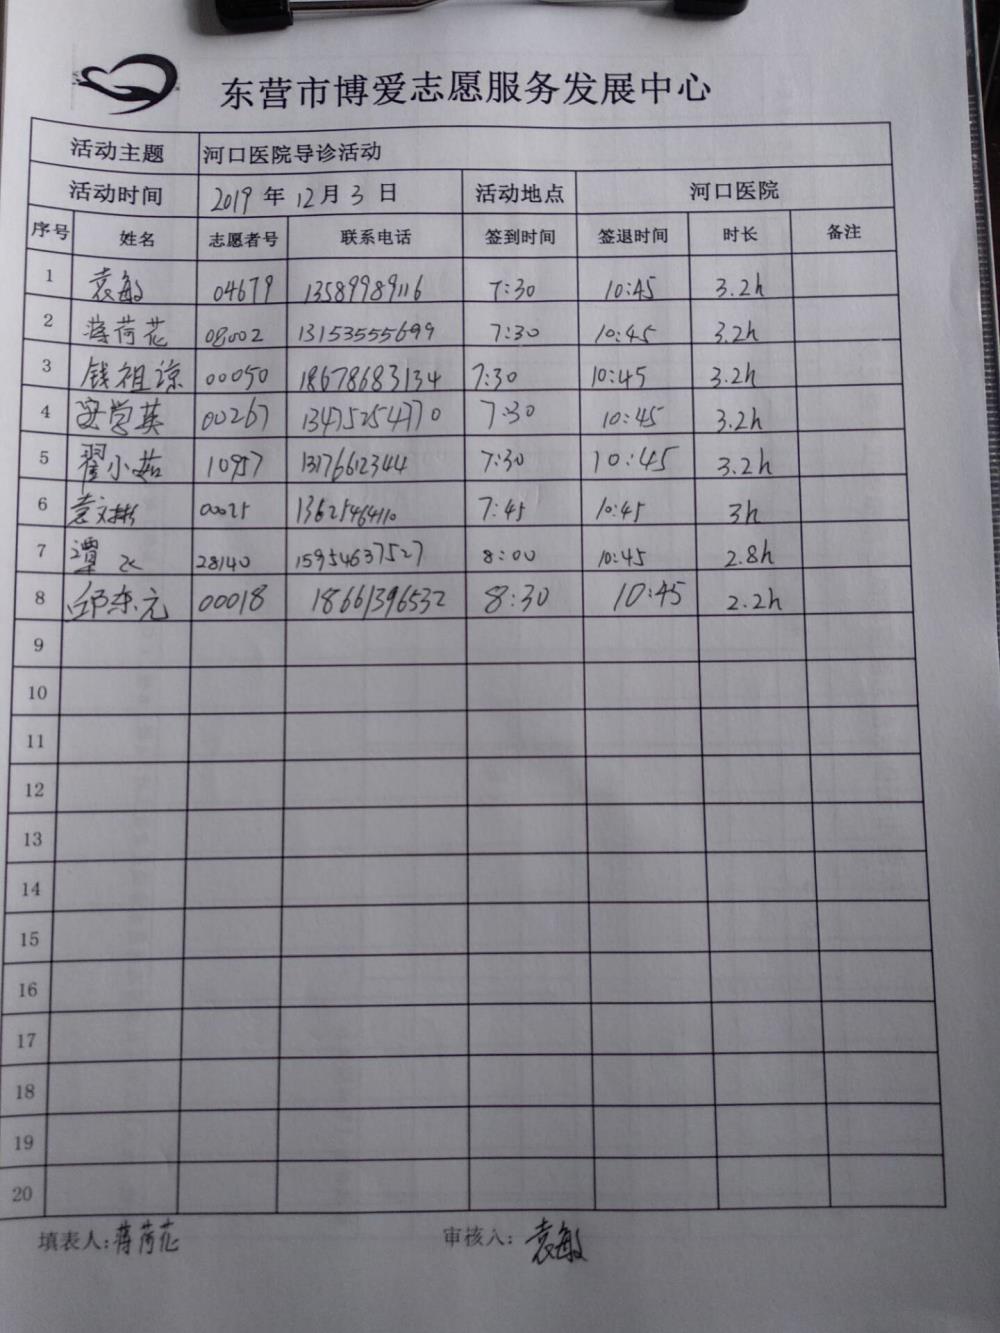 东营市博爱志愿服务发展中心
活动主题 河口医院导诊活动
活动时间 2019 年 12 月 3 日 活动地点 河口医院
序号 姓名 志愿者号 联系电话 签到时间 签退时间 时长 备注
1 袁敏 04679 13589989116 7:30 10:45 3.2h
2 蒋荷花 08002 13153555699 7:30 10:45 3.2h
3 钱祖谅 00050 18678683134 7:30 10:45 3.2h
4 学英 00267 13475254770 7:30 10:45 3.2h
5 翟小茹 10957 13176612344 7:30 10:45 3.2h
6 袁文彬 00025 13625464110 7:45 10:45 3h
7 谭 28140 15954637527 8:00 10:45 2.8h
8 邱东元 00018 18661396532 8:30 10:45 2.2h
9
10
11
12
13
14
15
16
17
18
19
20
填表人:蒋荷花 审核人:袁敏